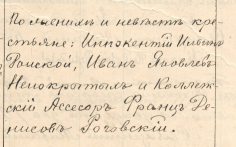 По женихѣ и невѣстѣ кре-
стьяне: Иннокентій Ильинъ
Раиской, Иванъ Яковлевъ
Непокрытыхъ и Коллеж-
скій Ассесоръ Францъ Де-
нисовъ Роговскій.